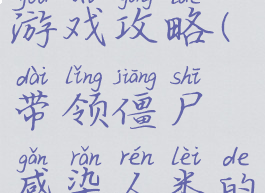 游戏攻略(
dài lǐng jiāng shī
带领僵尸
gǎn rǎn rén lèi de
感染人类的